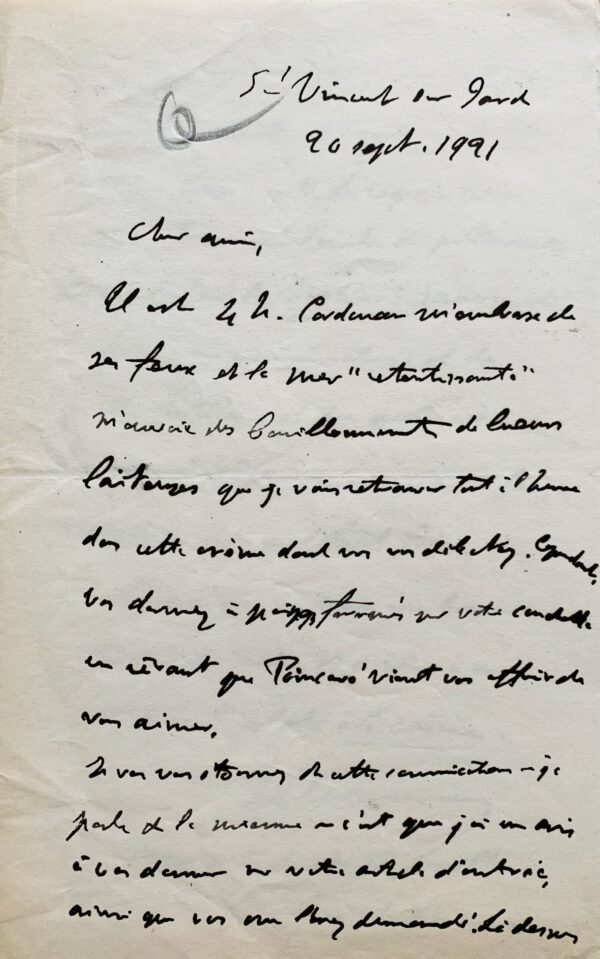 St Vincent sur Jard
20 sept. 1921
Cher ami,
Il est 4 h. Cordouan m'embrase de
ses feux et la mer "retentissante"
m'envoie des bouillonnements de lueurs
laiteuses que je vais retrouver tout à l'heure
dans cette crème dont vous vous délectez. Cependant,
vous dormez à poings fermés sur votre
en rêvant que Poincaré vient vous offrir de
vous aimer.
Si vous vous étonnez de cette communication – je
parle de la mienne – c'est que j'ai un avis
à vous donner sur votre article d'
ainsi que vous me l'avez demandé. Là dessus